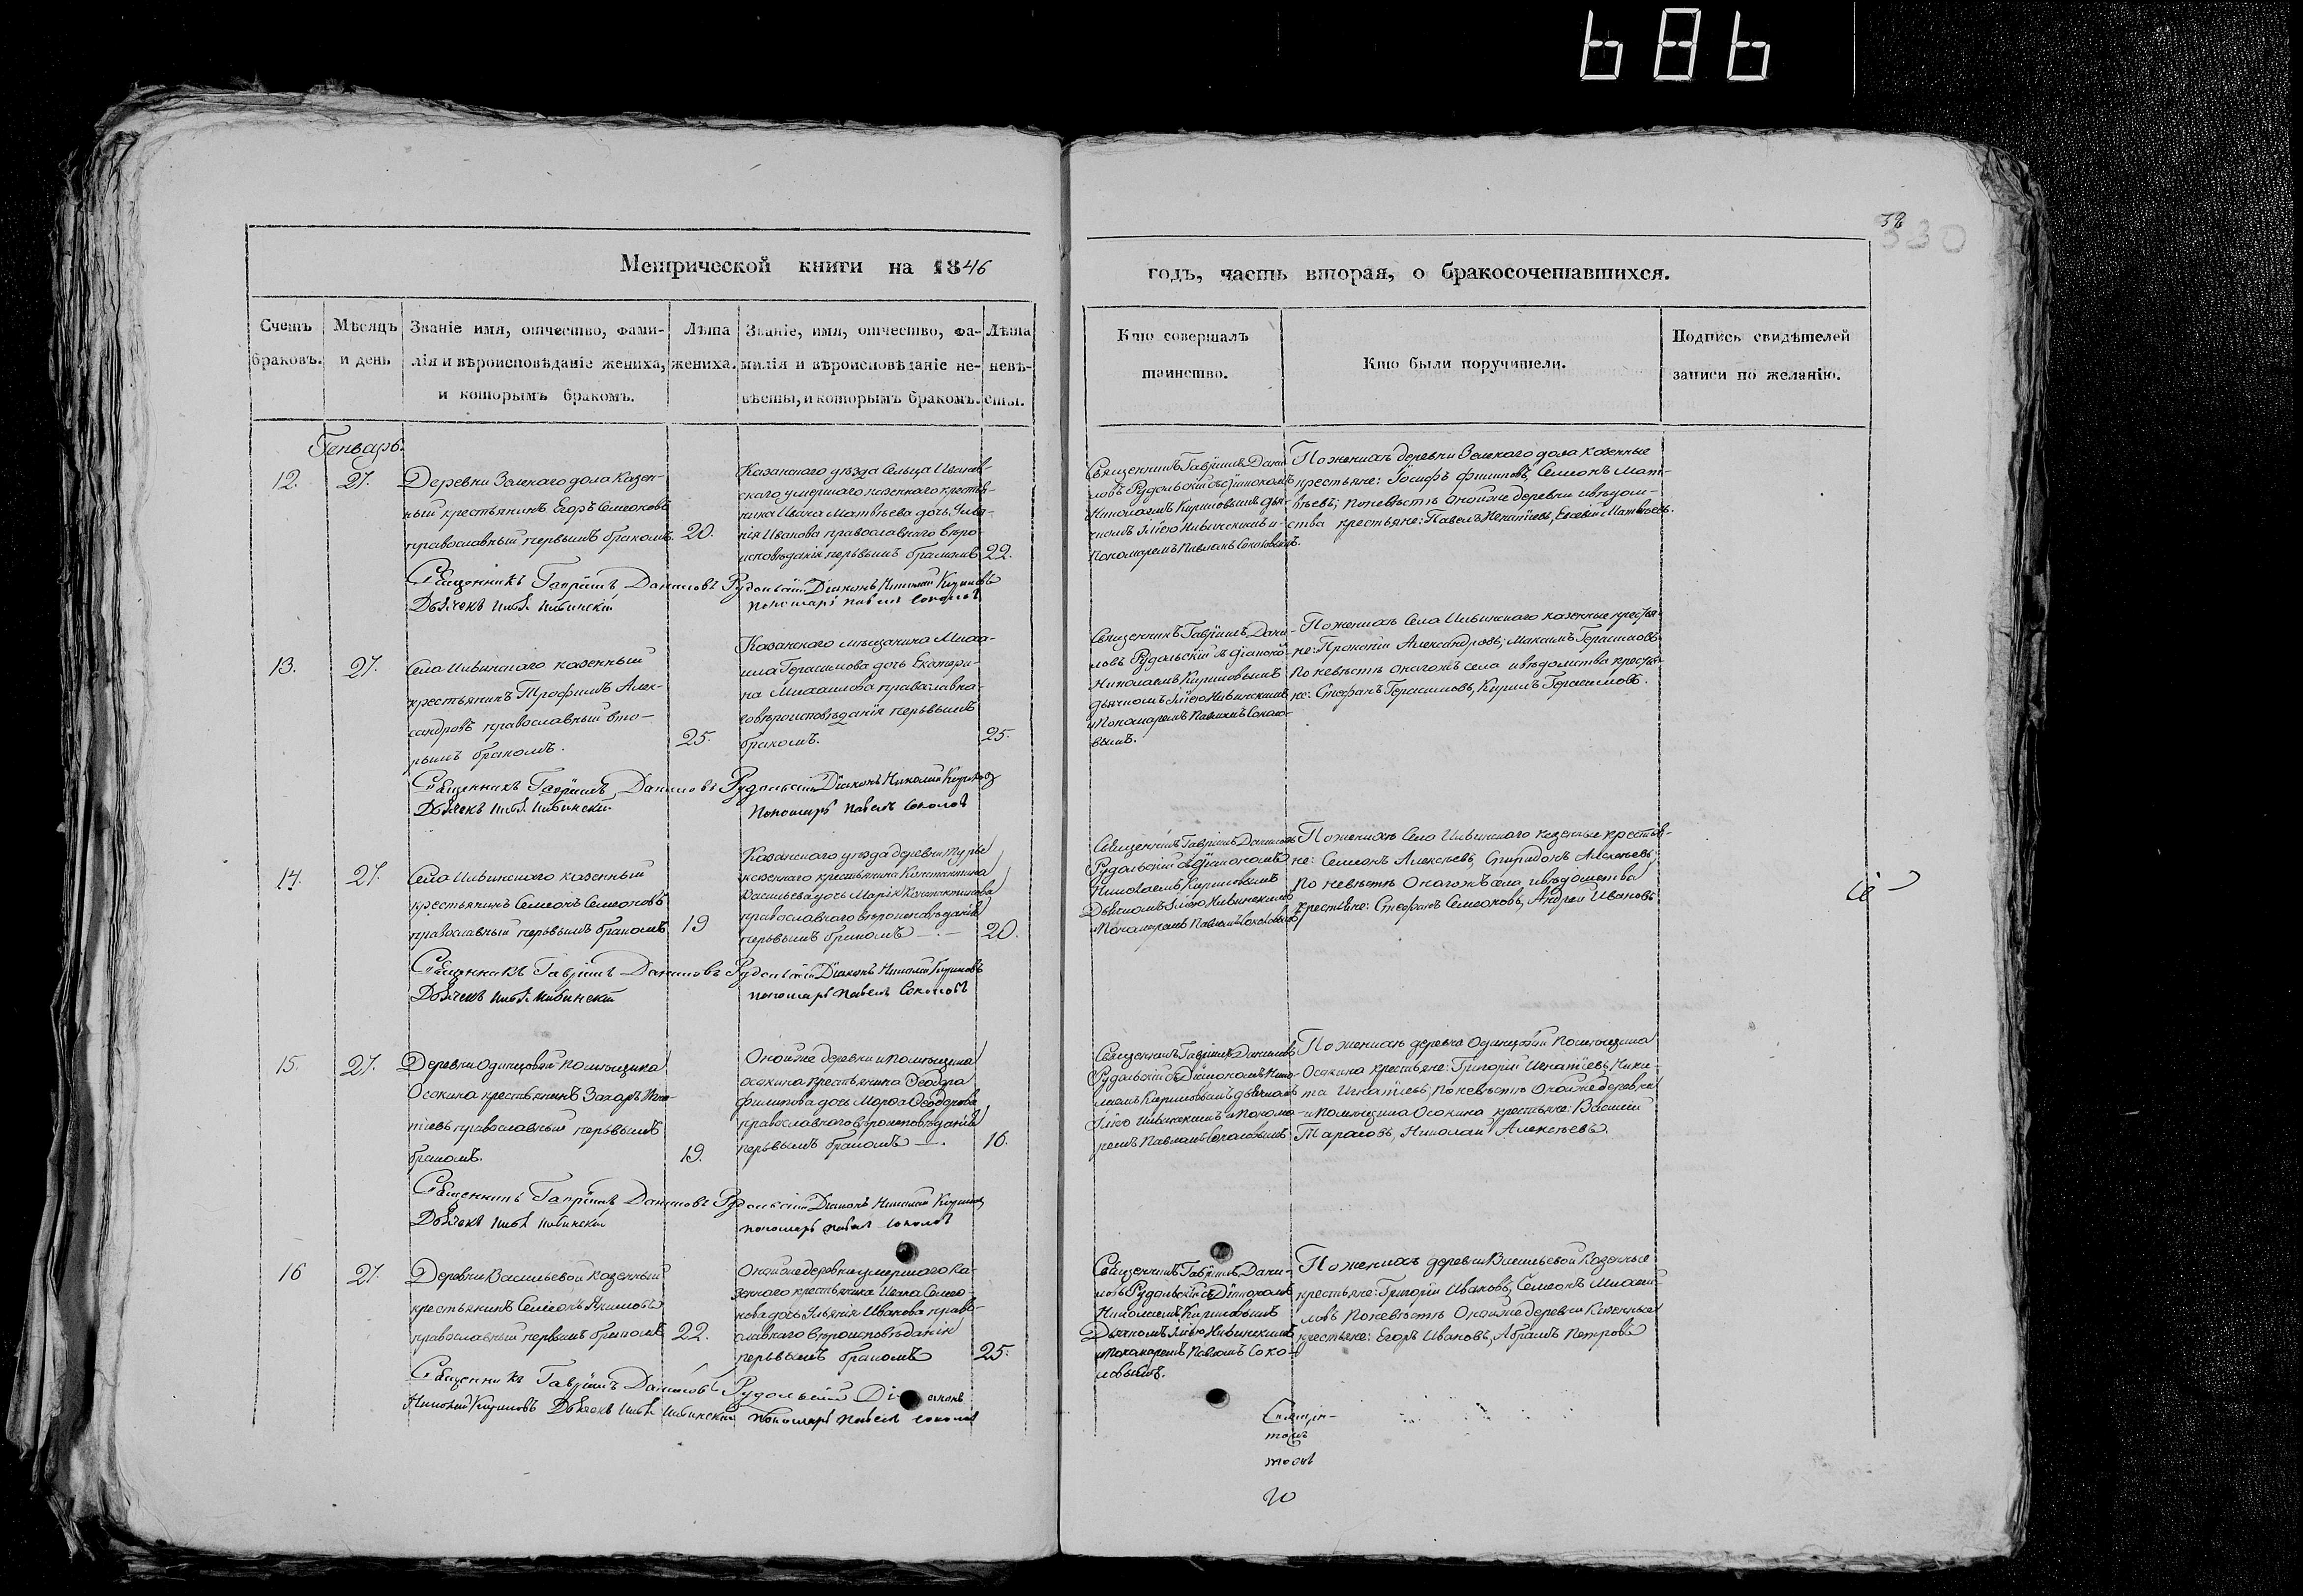 686
32
330
Метрической книги на 1846
годъ, часть вторая, о бракосочетавшихся.
Счетъ браковъ.
Мѣсяцъ и день
Званіе имя, отчество, фами-
лія и вѣроисповѣданіе жениха,
и которымъ бракомъ.
Лѣта
жениха.
Званіе, имя, отчество, фа-
милія и вѣроисповѣданіе не-
вѣсты, и которымъ бракомъ.
Лѣта
невѣ-
сты.
Кто совершалъ
таинство.
Кто были поручители.
Подпись свидѣтелей
записи по желанію.
Генварь.
12.
27.
Деревни Зеленаго дола казен-
ный крестьянинъ Егоръ Семеоновъ
православный первымъ бракомъ.
20.
Казанскаго уѣзда Сельца Иванов-
скаго умершаго казеннаго крестья-
нина Ивана Матвѣева дочь
Иванова православнаго вѣро-
исповѣданія первымъ бракомъ
22.
Священникъ Гавріилъ Дани-
ловъ Рудольскій съ Діакономъ
Николаемъ Кириловымъ дья-
чкомъ Ильею Ивинскимъ и
Пономаремъ Павломъ Соколовымъ.
По женихѣ деревни Зеленаго дола казенные
крестьяне: Іосифъ Филиповъ, Семеонъ Мат-
вѣевъ; по невѣстѣ оной же деревни и вѣдом-
ства крестьяне: Павелъ Игнатіевъ, Матвѣевъ.
Священникъ Гавріилъ Даниловъ Рудольскій Діаконъ Николай Кириловъ
Дьячекъ Илья Ивинскій
пономарь Павелъ Соколовъ
13.
27.
Села Ильинскаго казенный
крестьянинъ Трофимъ Алек-
сандровъ православный вто-
рымъ бракомъ.
25.
Казанскаго мѣщанина Миха-
ила Герасимова дочь Екатери-
на Михаилова православна-
го вѣроисповѣданія первымъ
бракомъ.
25.
Священникъ Гавріилъ Дани-
ловъ Рудольскій съ Діакономъ
Николаемъ Кириловымъ
дьячкомъ Ильею Ивинскимъ
и Пономаремъ Павломъ Соколо-
вымъ.
По женихѣ Села Ильинскаго казенные крестья-
не: Прокопій Александровъ, Максимъ Герасимовъ
По невѣстѣ онагожъ села и вѣдомства крестья-
не: Стефанъ Герасимовъ, Кирилъ Герасимовъ.
Священникъ Гавріилъ Даниловъ Рудольскій Діаконъ Николай Кириловъ
Дьячекъ Илья Ивинскій
Пономарь Павелъ Соколовъ
14.
27.
Села Ильинскаго казенный
крестьянинъ Семеонъ Семеоновъ
православный первымъ бракомъ
19
Казанскаго уѣзда деревни Туры
казеннаго крестьянина Константина
Васильева дочь Марія Константинова
православнаго вѣроисповѣданія
первымъ бракомъ
20.
Священникъ Гавріилъ Даниловъ
Рудольскій съ Діакономъ
Николаемъ Кириловымъ
Дьячкомъ Ильею Ивинскимъ
и Пономаремъ Павломъ Соколовымъ
По женихѣ Села Ильинскаго казенные крестья-
не: Семеонъ Алексѣевъ, Спиридонъ Алексѣевъ;
по невѣстѣ онагожъ села и вѣдомства
крестьяне: Стефанъ Семеоновъ, Андрей Ивановъ.
Священникъ Гавріилъ Даниловъ Рудольскій Діаконъ Николай Кириловъ
Дьячекъ Илья Ивинскій
пономарь Павелъ Соколовъ
15.
27.
Деревни Одинцовой помѣщика
Осокина крестьянинъ Захаръ Игна-
тіевъ православный первымъ
бракомъ.
19.
Оной же деревни и помѣщика
Осокина крестьянина Ѳеодора
Филипова дочь Марѳа Ѳеодорова
православнаго вѣроисповѣданія
первымъ бракомъ
16.
Священникъ Гавріилъ Даниловъ
Рудольскій съ Діакономъ Нико-
лаемъ Кириловымъ дьячкомъ
Ильею Ивинскимъ и Понома-
ремъ Павломъ Соколовымъ
По женихѣ деревни Одинцовой помѣщика
Осокина крестьяне: Григорій Игнатіевъ, Ники-
та Игнатіевъ; по невѣстѣ оной же деревни
и помѣщика Осокина крестьяне: Василій
Тарасовъ, Николай Алексѣевъ.
Священникъ Гавріилъ Даниловъ Рудольскій Діаконъ Николай Кириловъ
Дьячекъ Илья Ивинскій
пономарь Павелъ Соколовъ
16
27.
Деревни Васильевой казенный
крестьянинъ Семеонъ Якимовъ
православный первымъ бракомъ
22.
Оной же деревни умершаго ка-
зеннаго крестьянина Ивана Семео-
нова дочь Иванова право-
славнаго вѣроисповѣданія
первымъ бракомъ
25.
Священникъ Гавріилъ Дани-
ловъ Рудольскій съ Діакономъ
Николаемъ Кириловымъ
Дьячкомъ Ильею Ивинскимъ
и Пономаремъ Павломъ Соко-
ловымъ.
По женихѣ деревни Васильевой казенные
крестьяне: Григорій Ивановъ, Семеонъ Михаи-
ловъ По невѣстѣ оной же деревни казенные
крестьяне: Егоръ Ивановъ, Абрамъ Петровъ
Священникъ Гавріилъ Даниловъ Рудольскій Діаконъ
Николай Кириловъ Дьячекъ Илья Ивинскій пономарь Павелъ Соколовъ